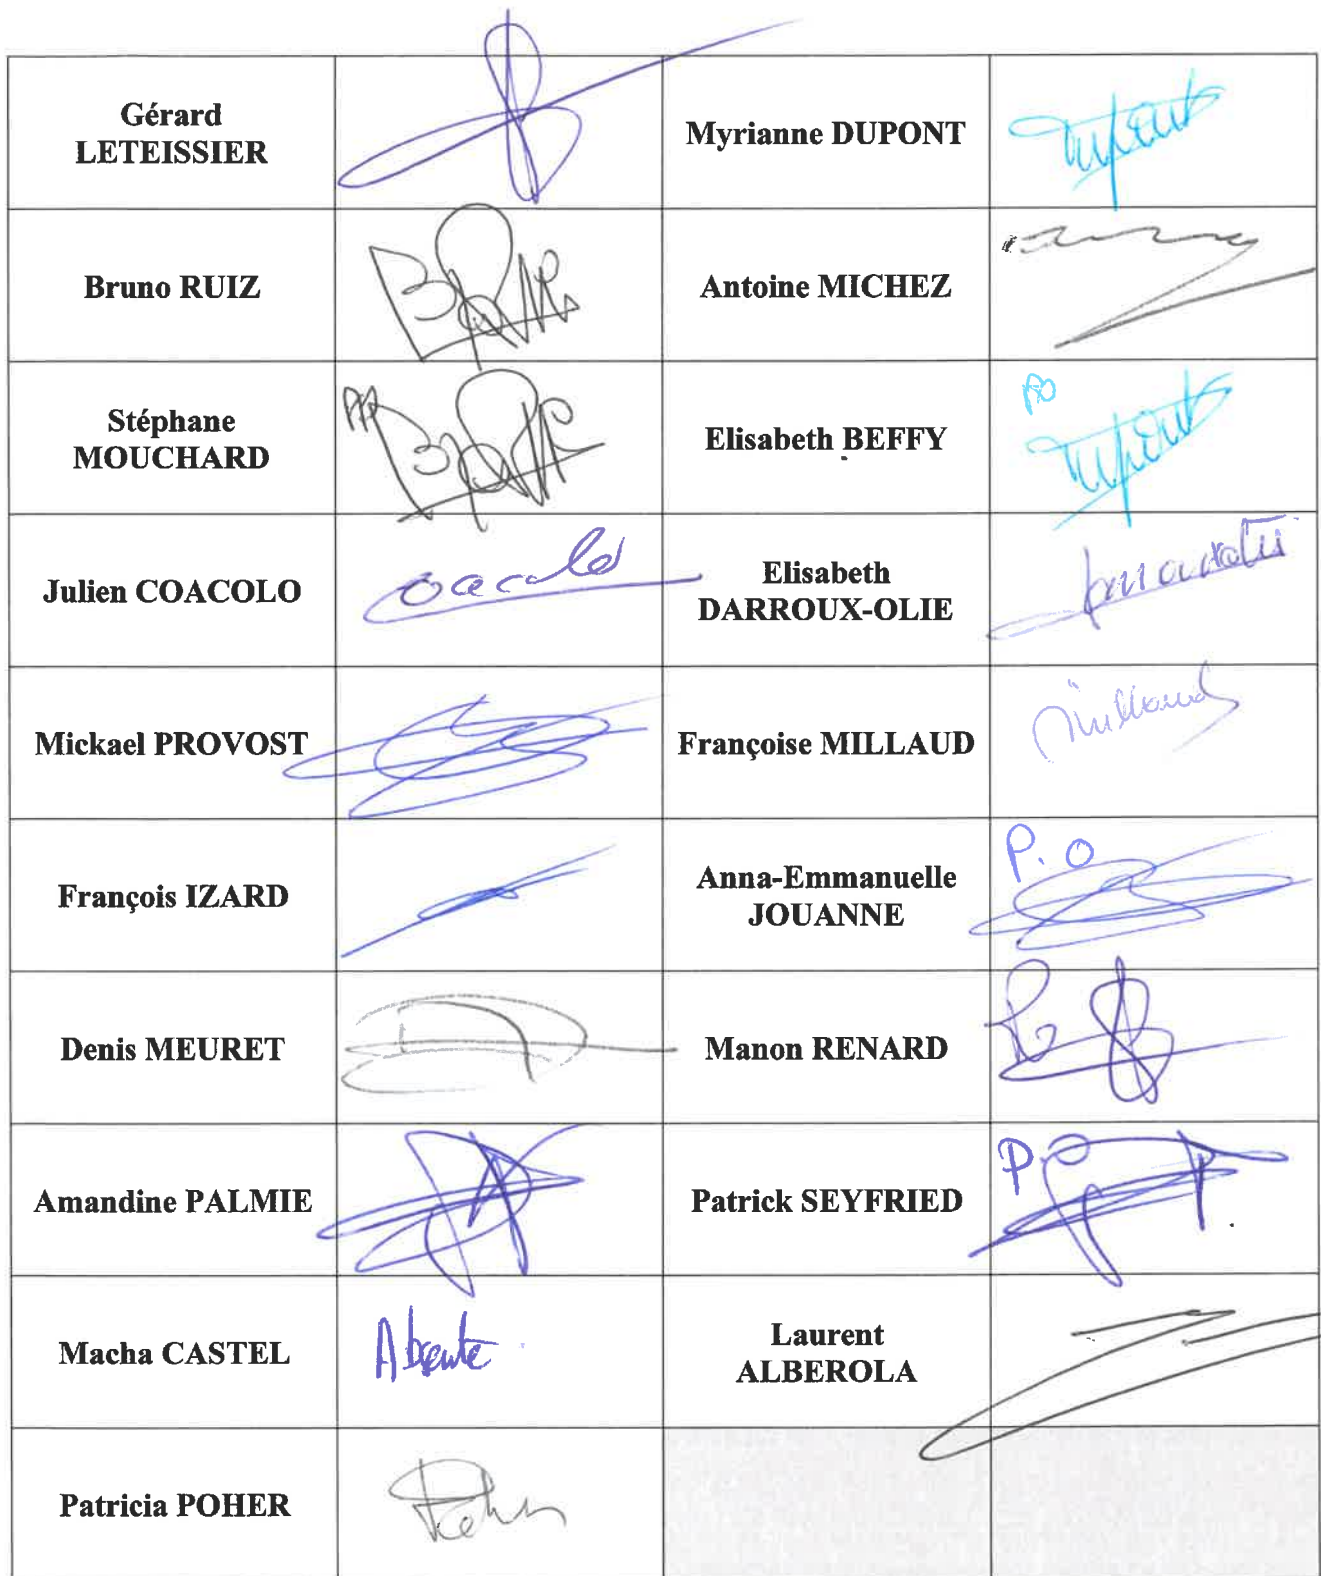 Gérard
LETEISSIER
Myrianne DUPONT
Dupont
Bruno RUIZ
Antoine MICHEZ
Stéphane
MOUCHARD
Elisabeth BEFFY
PO
Dupont
Julien COACOLO
Coacolo
Elisabeth
DARROUX-OLIE
Mickael PROVOST
Françoise MILLAUD
Millaud
François IZARD
Anna-Emmanuelle
JOUANNE
P.O
Denis MEURET
Manon RENARD
Amandine PALMIE
Patrick SEYFRIED
P.O
Macha CASTEL
Absente
Laurent
ALBEROLA
Patricia POHER
Poher